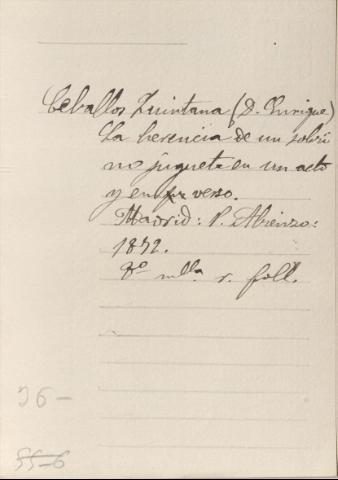 Ceballos Quintana (D. Enrique)
La herencia de un sobri
no juguete en un acto
y en verso.
Madrid: P. Abienzo:
1872.
8º mlla. r. foll.
96-
55-6